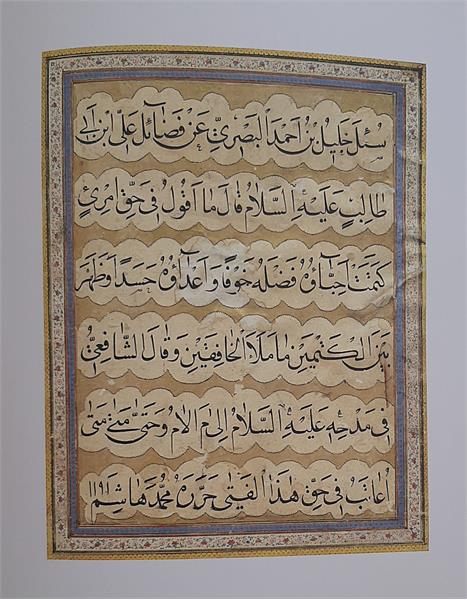 سُئِلَ خَلِيلُ بْنُ أَحْمَدَ الْبَصْرِيِّ عَنْ فَضَائِلِ عَلِيِّ ابْنِ أَبِي
طَالِبٍ عَلَيْهِ السَّلَامُ قَالَ مَا أَقُولُ فِي حَقِّ امْرِئٍ
كَتَمَتْ أَحِبَّاؤُهُ فَضْلَهُ خَوْفًا وَأَعْدَاؤُهُ حَسَدًا وَظَهَرَ
بَيْنَ الْكَتْمَيْنِ مَا مَلَأَ الْخَافِقَيْنِ وَقَالَ الشَّافِعِيُّ
فِي مَدْحِهِ عَلَيْهِ السَّلَامُ إِلَى مَ الَامُ وَحَتَّى مَتَى
أُعَاتَبُ فِي حَقِّ هَذَا الْفَتَى حَرَّرَهُ مُحَمَّد هَاشِم ١١٩١